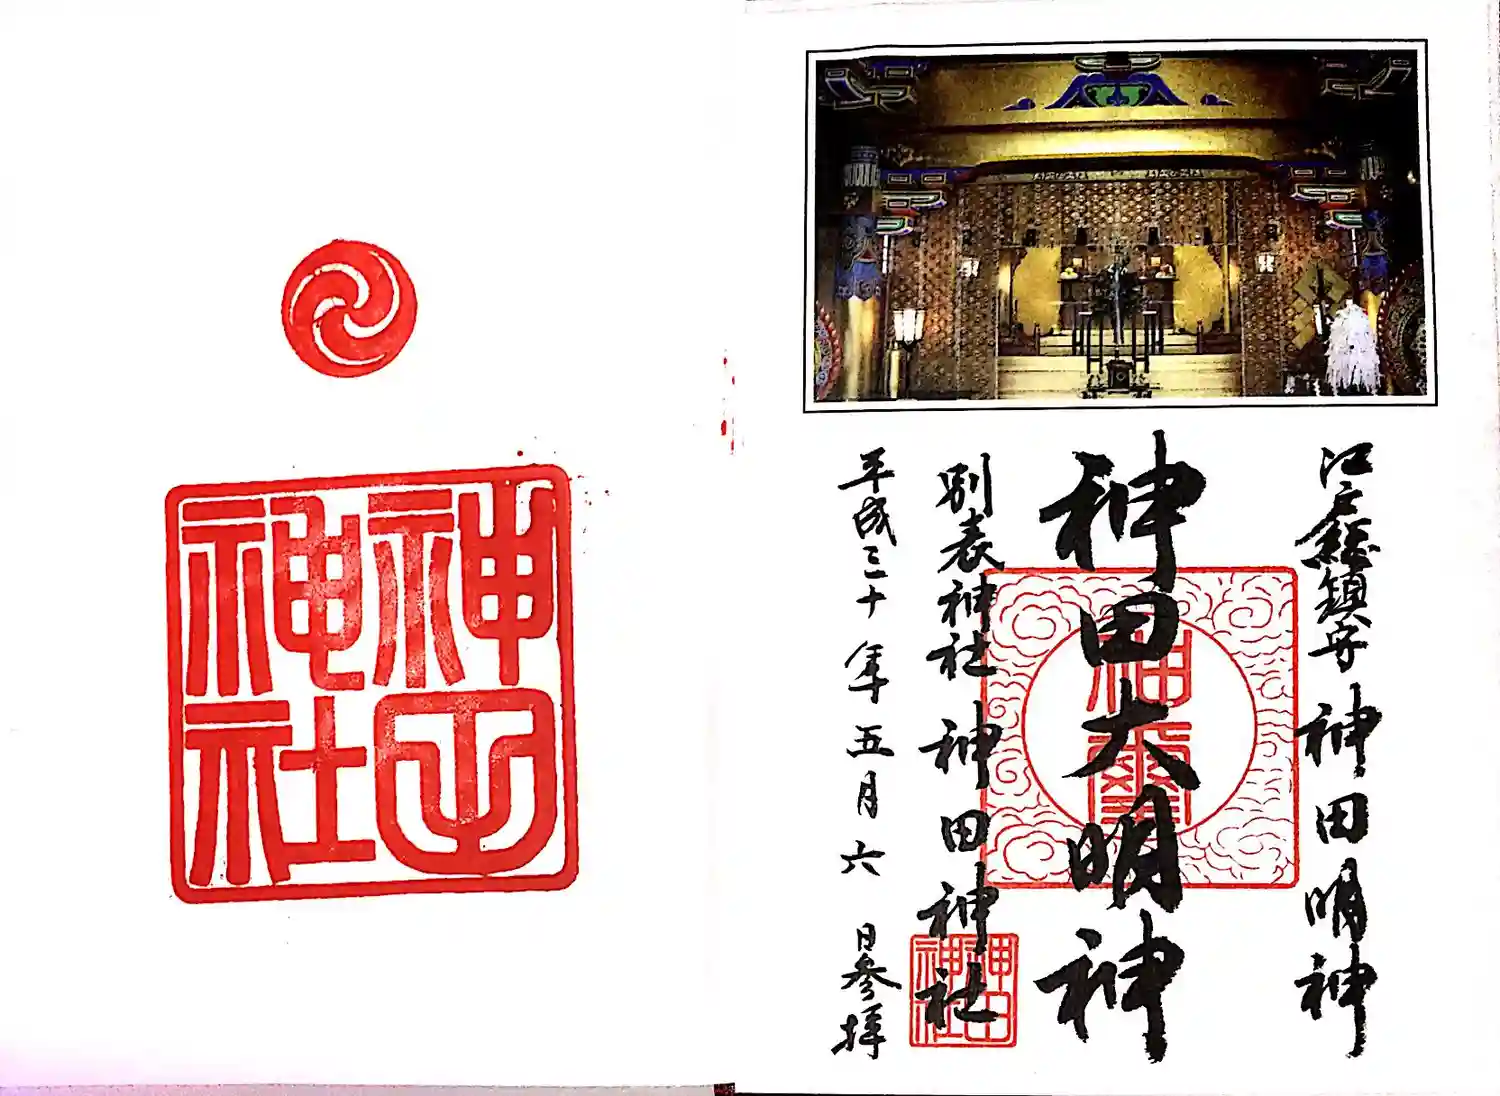 江戸総鎮守 神田明神
神田大明神
神璽
別表神社 神田神社
神田神社
平成三十年五月六日参拝
神田神社